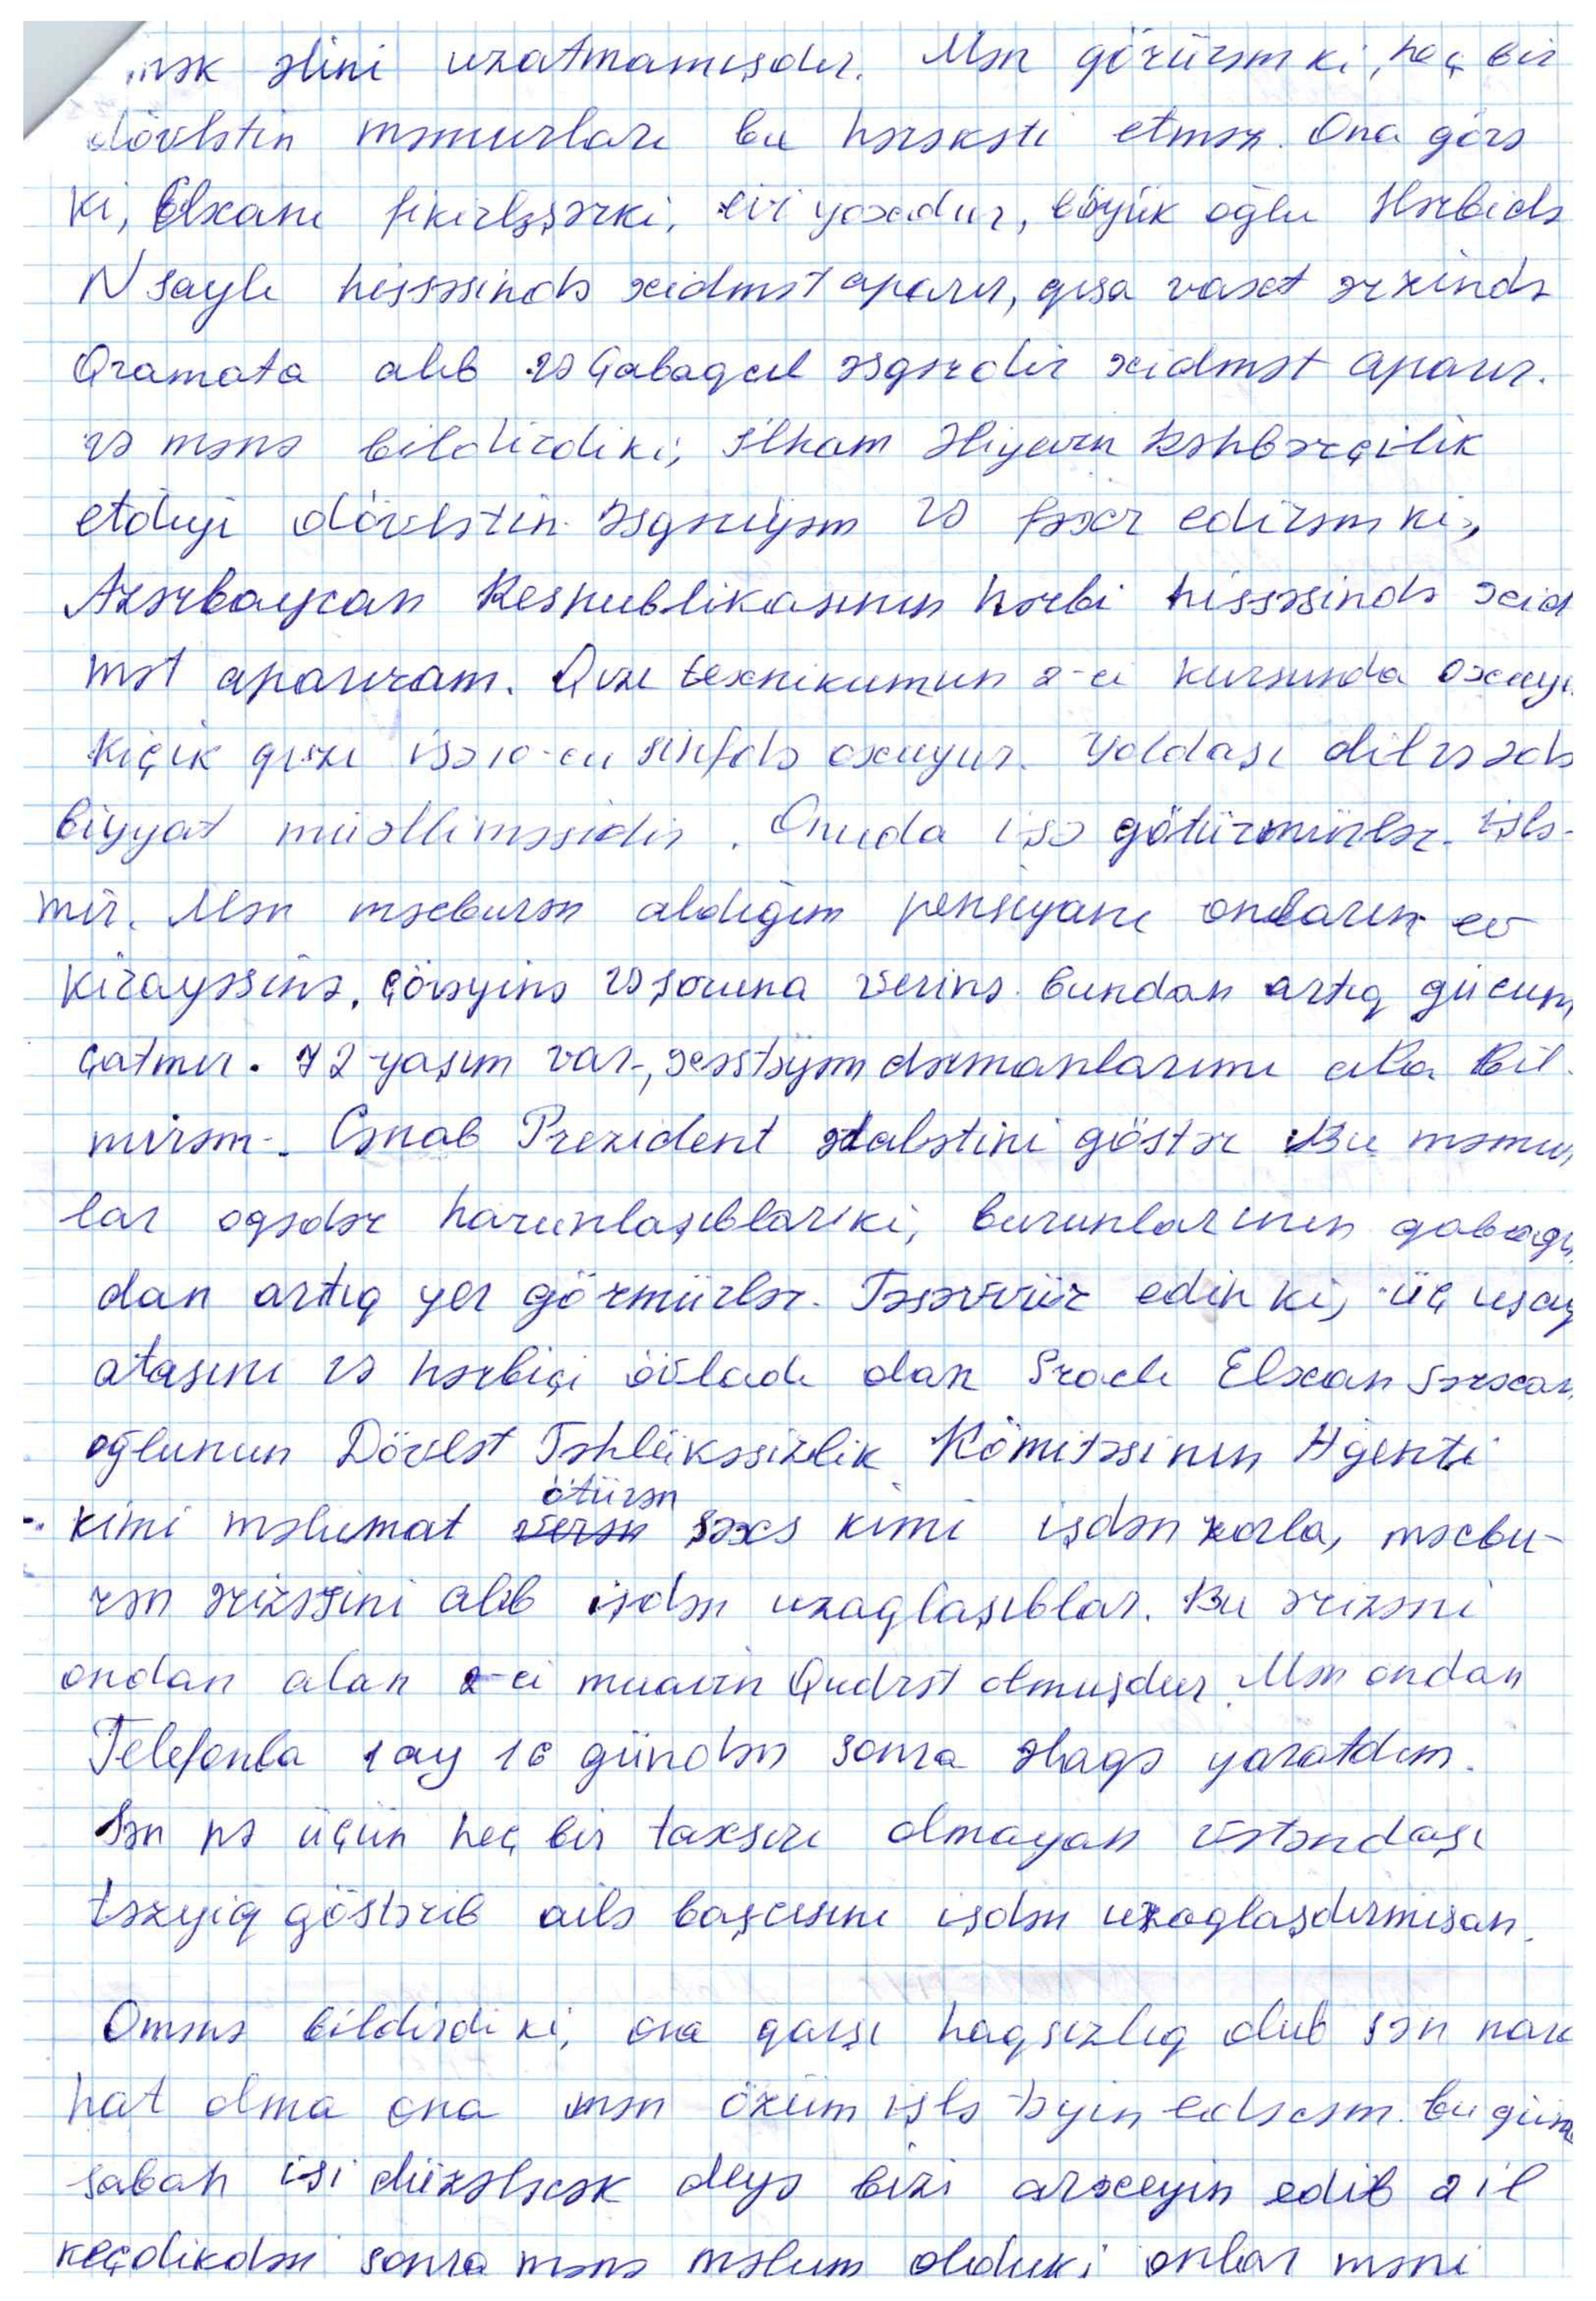 əlini uzatmamışdır. Mən görürəm ki, heç bir
dövlətin məmurları bu hərəkəti etməz. Ona görə
ki, Elxanı fikirləşərki, evi yoxdur, böyük oğlu Hərbidə
N saylı hissəsində xidmət aparır, qısa vaxt ərzində
Qramata alıb və Qabaqcıl əsgərdir xidmət aparır.
və mənə bildirdiki, İlham Əliyevin Rəhbərçilik
etdiyi dövlətin əsgəriyəm və fəxr edirəm ki,
Azərbaycan Respublikasının hərbi hissəsində xid
mət aparıram. Qızı texnikumun 2-ci kursunda oxuyu
Kiçik qızı isə 10-cu sinfdə oxuyur. Yoldaşı dil və ədə
biyyat müəlliməsidir. Onuda işə götürmürlər. işlə-
mir. Mən məcburən aldığım pensiyanı onların ev
kirayəsinə, çörəyinə və şoruna verirəm. bundan artıq gücüm
çatmır. 72 yaşım var, xəstəyəm dərmanlarımı ala bil
mirəm. Cənab Prezident ədalətini göstər Bu məmur
lar oqədər harunlaşıblarki, burunlarının qabağı
dan artıq yer görmürlər. Təsəvvür edin ki, üç uşaq
atasını və hərbiçi övladı olan Elxan Sərxan
oğlunun Dövlət Təhlükəsizlik Komitəsinin Agenti
kimi məlumat ötürən şəxs kimi işdən zorla, məcbu-
rən ərizəsini alıb işdən uzaqlaşıblar. Bu ərizəni
ondan alan 2-ci muavin Qudrət olmuşdur. Mən ondan
Telefonla 1 ay 16 gündən sonra əlaqə yaratdım.
Sən nə üçün heç bir taxsırı olmayan vətəndaşı
təzyiq göstərib ailə başçısını işdən uzaqlaşdırmısan.
Omənə bildirdi ki, ona qarşı haqsızlıq olub sən nara
hat olma ona mən özüm işlə təyin edəcəm. bu gün
sabah işi düzələcək deyə bizi arxeyin edib 2 il
keçdikdən sonra mənə məlum olduki onlar məni